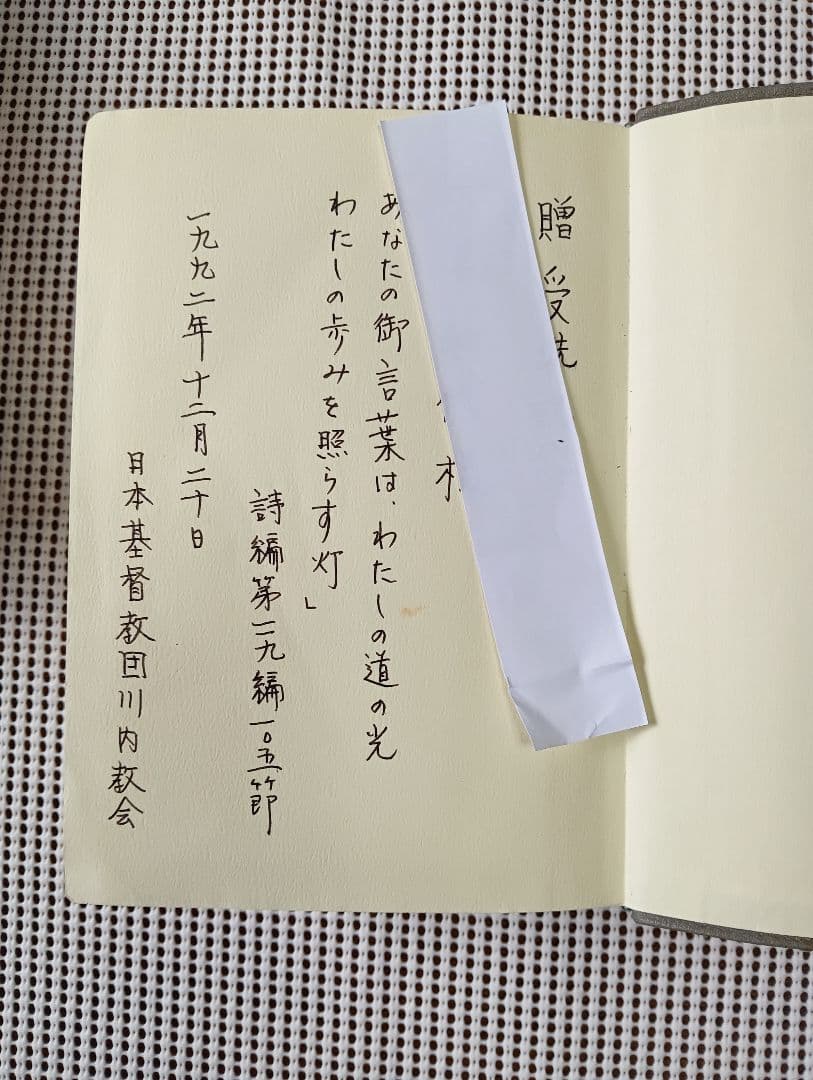 贈 受洗
様
あなたの御言葉は、わたしの道の光
わたしの歩みを照らす灯」
詩編第一一九編一〇五節
一九九二年十二月二十日
日本基督教団川内教会